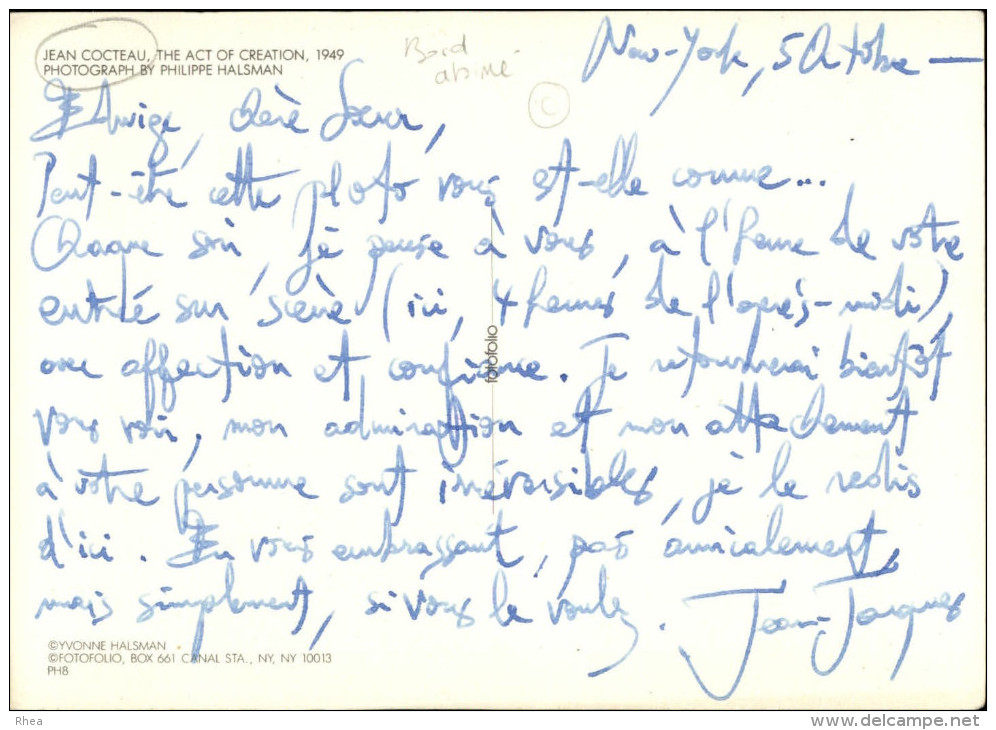 JEAN COCTEAU, THE ACT OF CREATION, 1949
PHOTOGRAPH BY PHILIPPE HALSMAN
Bord
abimé
C
New-York, 5 Octobre —
Edwige, chère Soeur,
Peut-être cette photo vous est-elle connue...
Chaque soir, je pense à vous, à l'heure de votre
entrée sur scène (ici, 4 heures de l'après-midi),
avec affection et confiance. Je retournerai bientôt
vous voir, mon admiration et mon attachement
à votre personne sont irréversibles, je le redis
d'ici. En vous embrassant, pas amicalement,
mais simplement, si vous le voulez.
Jean-Jacques
fotofolio
©YVONNE HALSMAN
©FOTOFOLIO, BOX 661 CANAL STA., NY, NY 10013
PH8
Rhea
www.delcampe.net